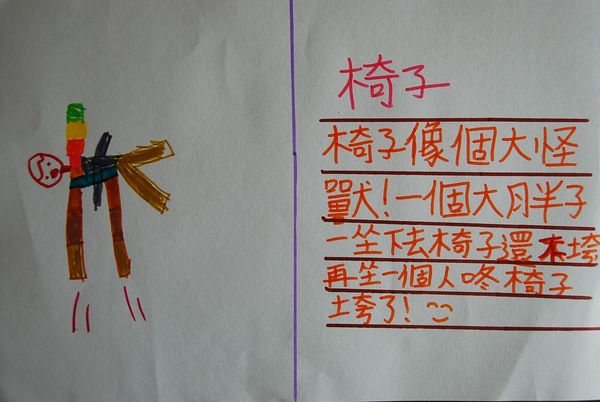 椅子
椅子像個大怪
獸!一個大胖子
一坐下去椅子還未垮
再坐一個人咚椅子
垮了!